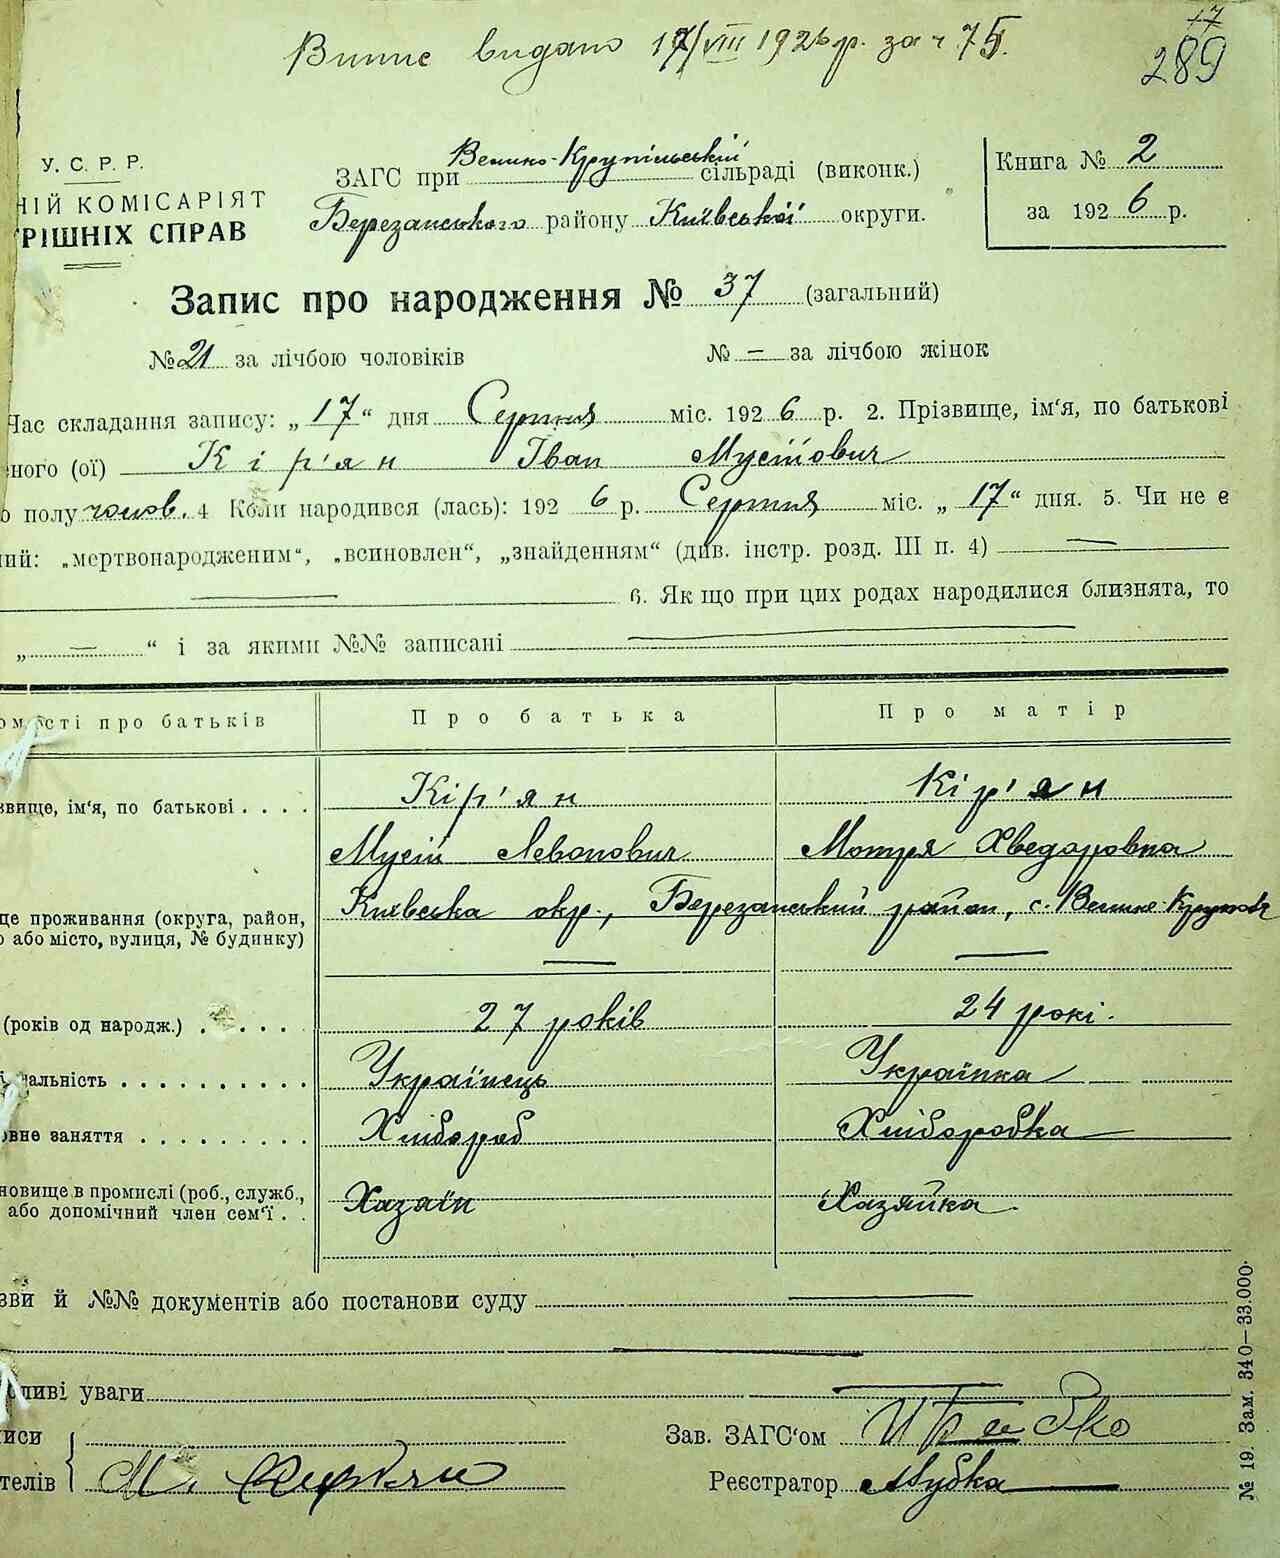 Випис видано 17/VIII 1926 р. за ч 75.
17
289
У.С.Р.Р.
НІЙ КОМІСАРІЯТ
РІШНІХ СПРАВ
ЗАГС при Велико-Крупільській сільраді (виконк.)
Березанського району Київської округи.
Книга № 2
за 1926 р.
Запис про народження № 37 (загальний)
№ 21 за лічбою чоловіків № — за лічбою жінок
Час складання запису: „17“ дня Серпня міс. 1926 р. 2. Прізвище, ім‘я, по батькові
ного (ої) Кір'ян Іван Мусійович
о полу чолов. 4 Коли народився (лась): 1926 р. Серпня міс. „17“ дня. 5. Чи не є
ий: „мертвонародженим“, „всиновлен“, „знайденням“ (див. інстр. розд. III п. 4) —
— 6. Як що при цих родах народилися близнята, то
„—“ і за якими №№ записані —
омості про батьків Про батька Про матір
звище, ім‘я, по батькові . . . . Кір'ян Кір'ян
Мусій Левонович Мотря Хведоровна
це проживання (округа, район, Київська окр., Березанський район, с. Велике-Крупол
о або місто, вулиця, № будинку)
— —
(років од народж.) . . . . . 27 років 24 рокі.
альність . . . . . . . . . . Українець Українка
овне заняття . . . . . . . . . Хлібороб Хліборобка
новище в промислі (роб., служб., Хазаїн Хазяйка.
або допомічний член сем‘ї . .
зви й №№ документів або постанови суду —
—
ливі уваги —
иси
телів М. Кирьян
Зав. ЗАГС‘ом
Реєстратор Лубка
№ 19. Зам. 340—33.000.